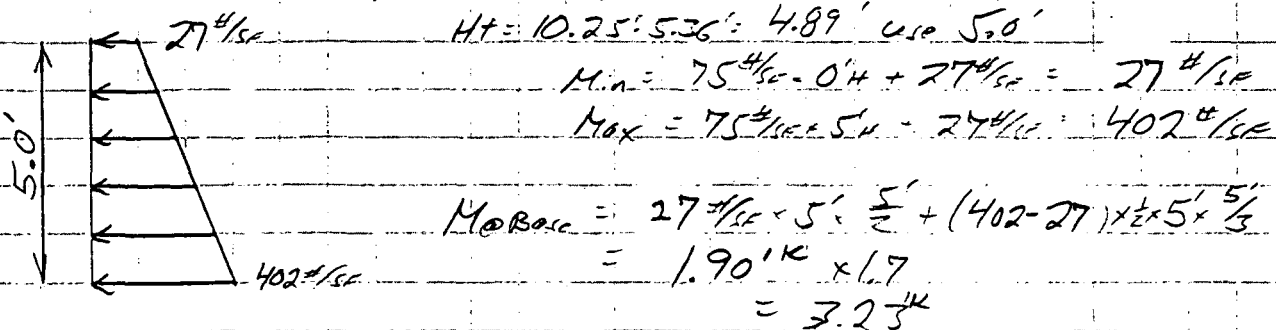 27 #/SF Ht = 10.25' - 5.36' = 4.89' use 5.0'
Min = 75 #/SF × 0'H + 27 #/SF = 27 #/SF
Max = 75 #/SF × 5'H + 27 #/SF = 402 #/SF
5.0'
M@Base = 27 #/SF × 5' × 5'/2 + (402-27) × 1/2 × 5' × 5'/3
= 1.90'K × 1.7
402 #/SF
= 3.23'K